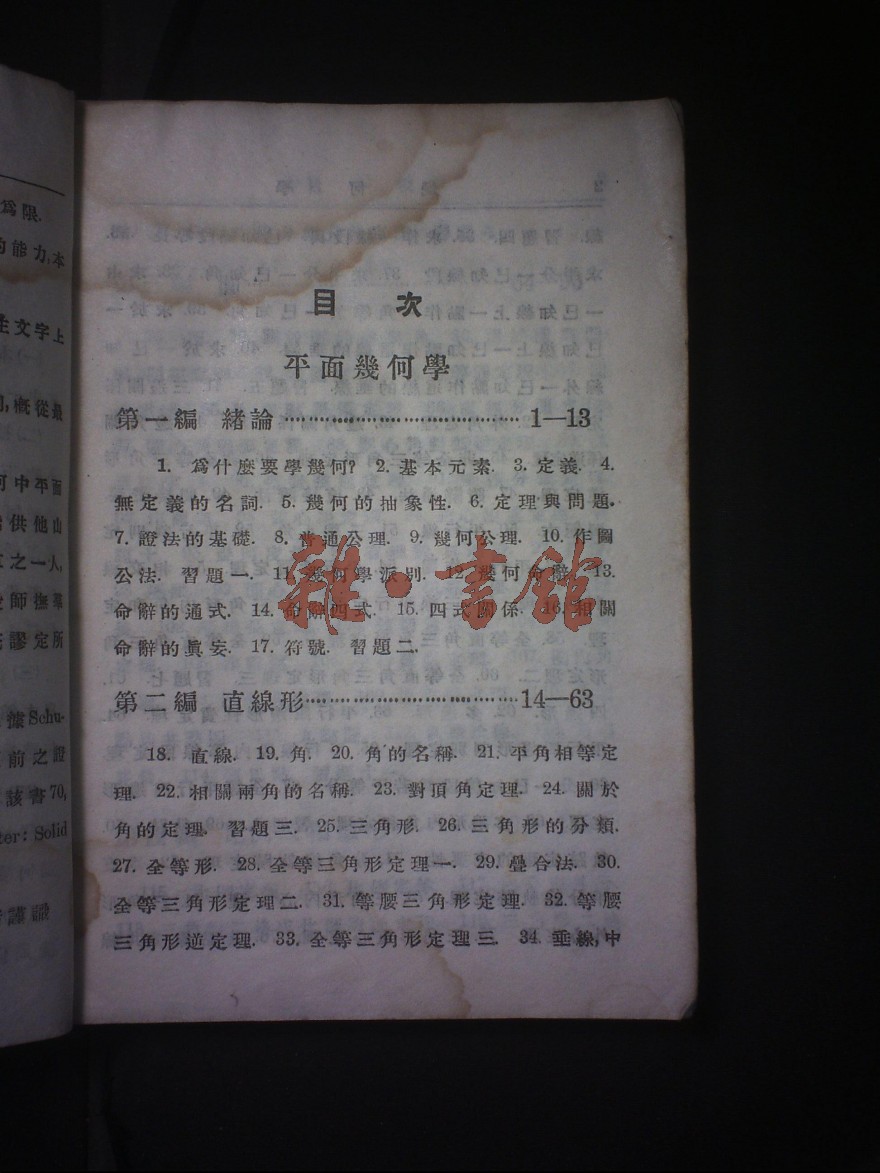 為限.
的能力,本
生文字上
何中平面
供他山
之一人,
師撫羣
謬定所
據Schu-
前之證
該書70,
ter: Solid
謹識
目 次
平面幾何學
第一編 緒論 …………………………… 1—13
1. 爲什麼要學幾何? 2. 基本元素. 3. 定義. 4.
無定義的名詞. 5. 幾何的抽象性. 6. 定理與問題.
7. 證法的基礎. 8. 普通公理. 9. 幾何公理. 10. 作圖
公法. 習題一. 11. 幾何學派別. 12. 幾何命辭. 13.
命辭的通式. 14. 命辭四式. 15. 四式關係. 16. 相關
命辭的眞妄. 17. 符號. 習題二.
第二編 直線形 …………………………… 14—63
18. 直線. 19. 角. 20. 角的名稱. 21. 平角相等定
理. 22. 相關兩角的名稱. 23. 對頂角定理. 24. 關於
角的定理. 習題三. 25. 三角形. 26. 三角形的分類.
27. 全等形. 28. 全等三角形定理一. 29. 疊合法. 30.
全等三角形定理二. 31. 等腰三角形定理. 32. 等腰
三角形逆定理. 33. 全等三角形定理三. 34. 垂線,中
雜·書館